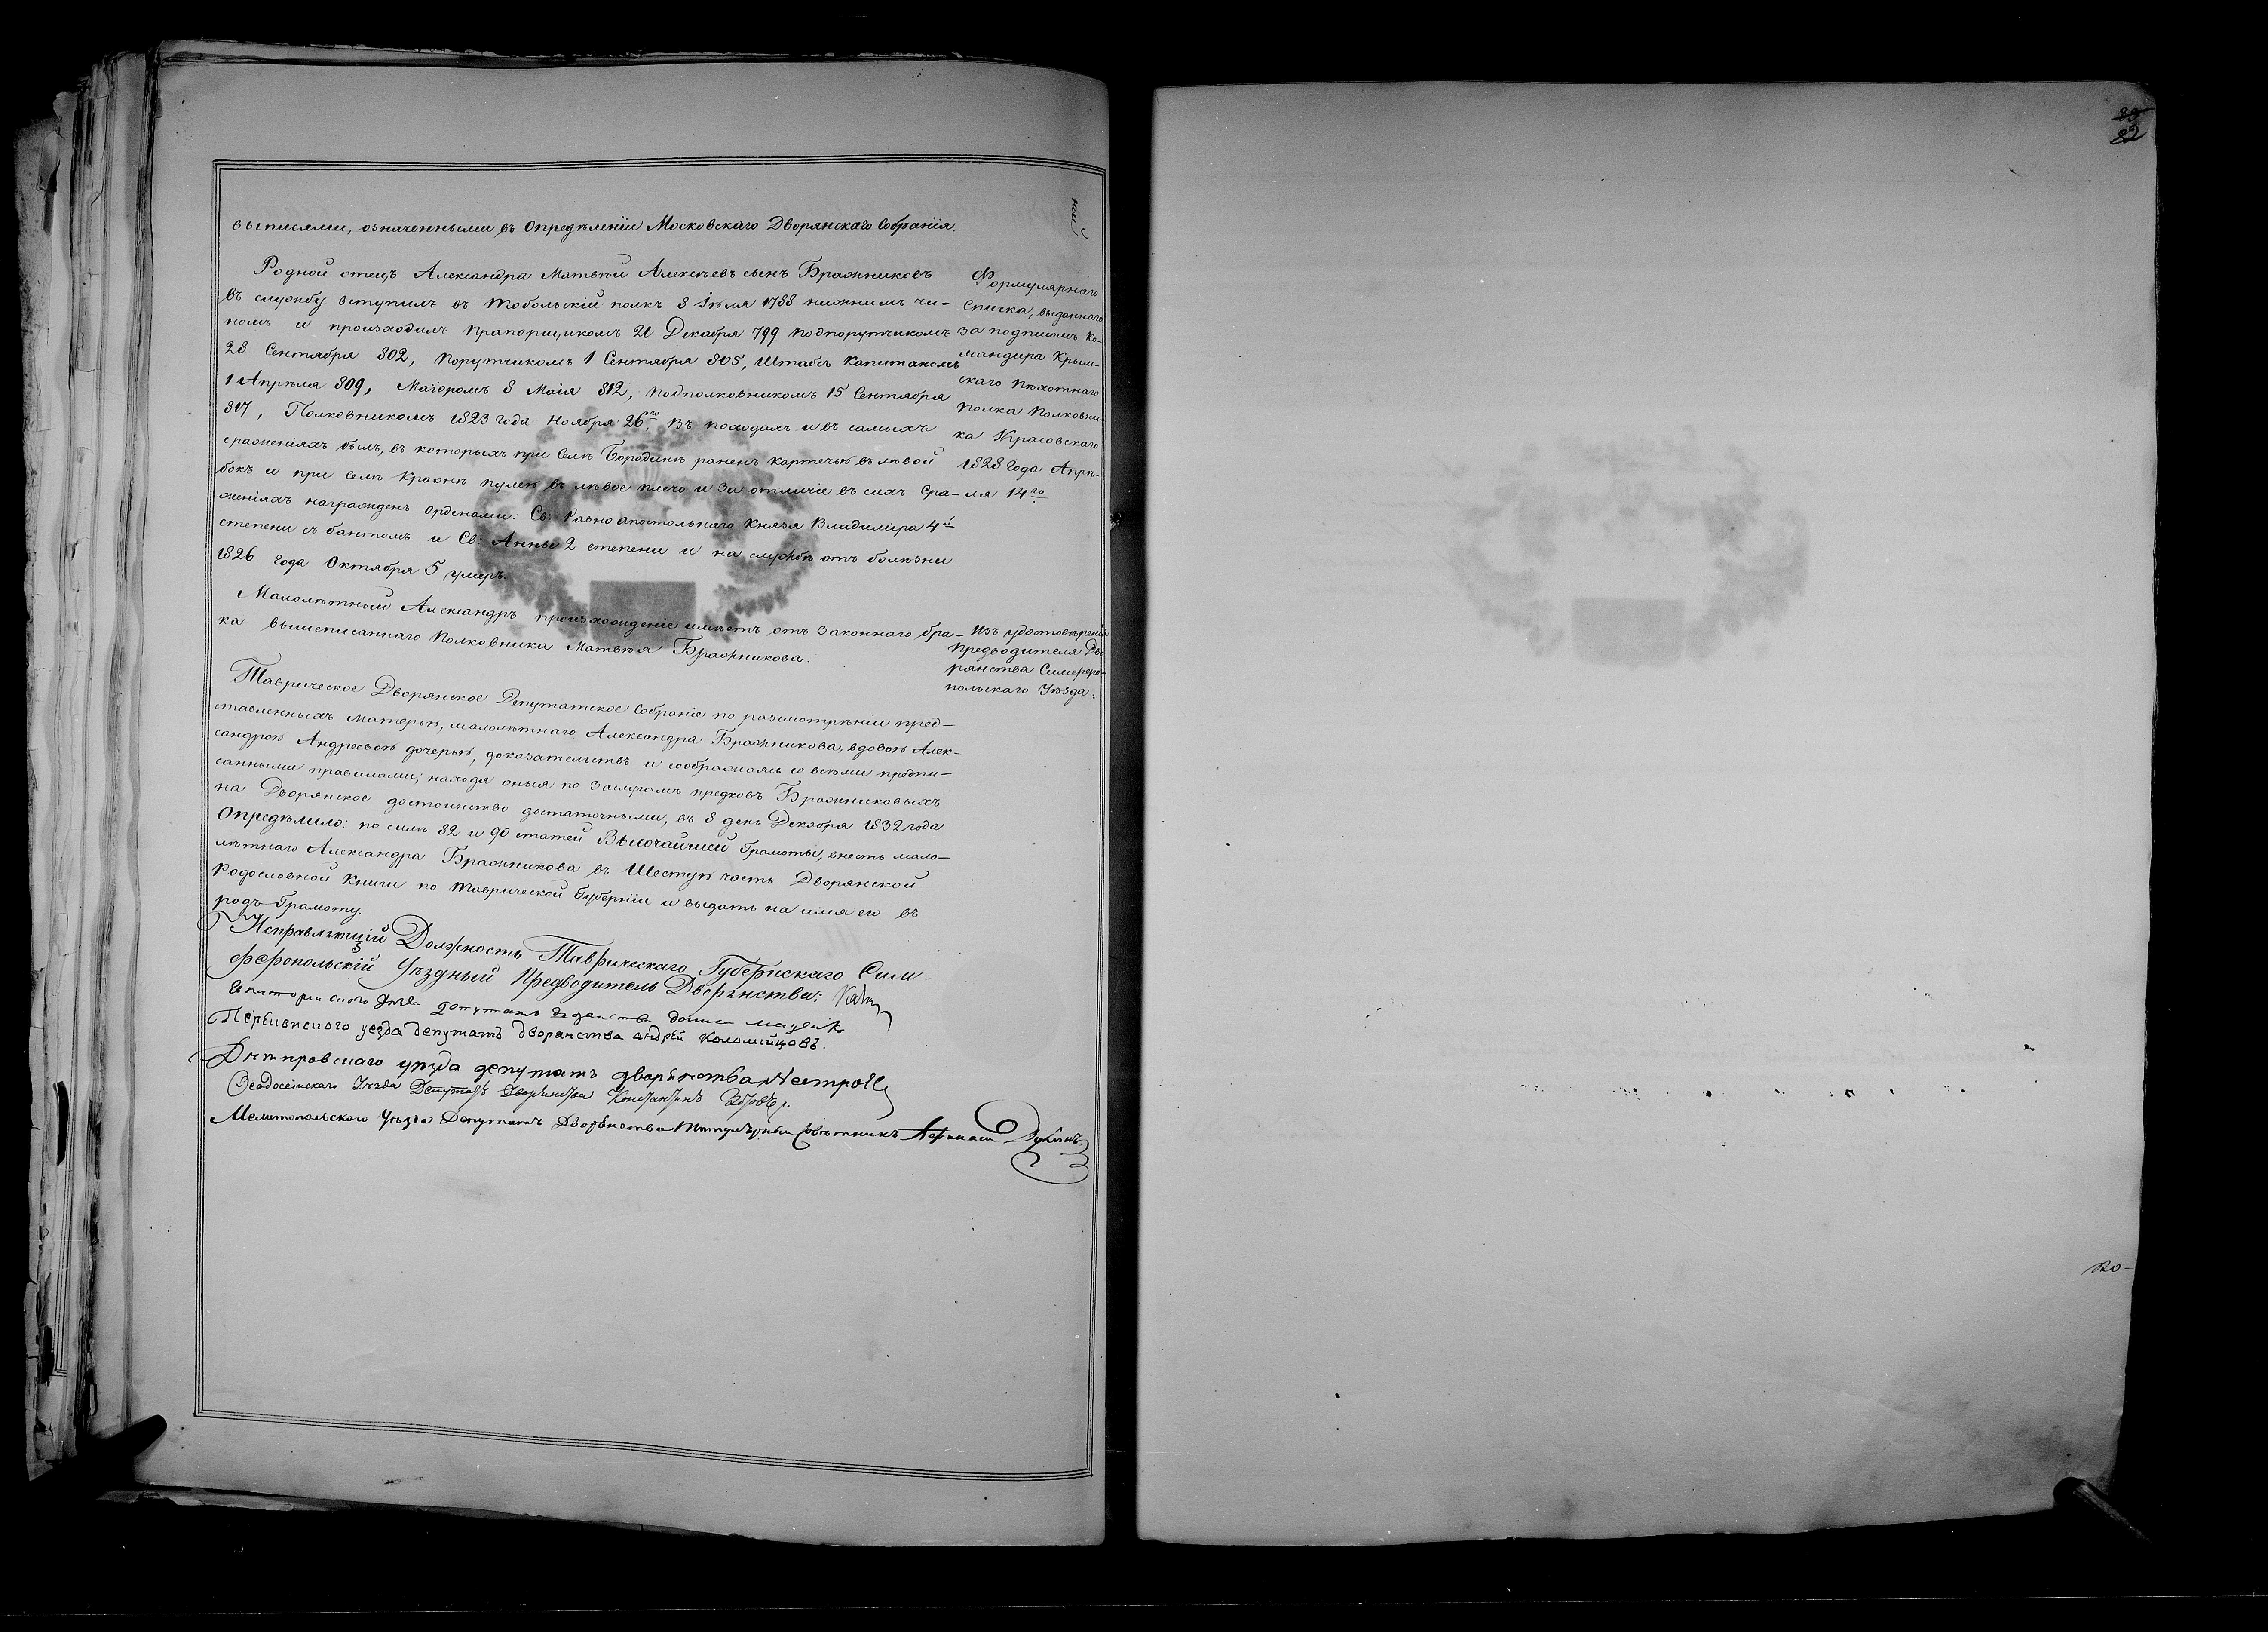 выписями, означенными въ Опредѣленіи Московскаго Дворянскаго Собранія.
Родной отецъ Александра Матвѣй Алексѣевъ сынъ Бражниковъ
въ службу вступилъ въ Тобольскій полкъ 8 Іюля 1788 нижнимъ чи-
номъ и происходилъ Прапорщикомъ 21 Декабря 799 Подпорутчикомъ
28 Сентября 802, Порутчикомъ 1 Сентября 805, Штабсъ Капитаномъ
1 Апрѣля 809, Маіоромъ 8 Маія 812, Подполковникомъ 15 Сентября
817, Полковникомъ 1823 года Ноября 26го, въ походахъ и въ самыхъ
сраженіяхъ былъ, въ которыхъ при Селѣ Бородинѣ раненъ картечью въ лѣвой
бокъ и при селѣ Красномъ пулею въ лѣвое плечо и за отличіе въ сихъ Сра-
женіяхъ награжденъ Орденами: Св: Равноапостольнаго Князя Владиміра 4й
степени съ бантомъ и Св: Анны 2 степени и на службѣ отъ болѣзни
1826 года Октября 5 умеръ.
Формулярнаго
Списка, выданнаго
за подписомъ Ко-
мандира Крым-
скаго Пѣхотнаго
Полка Полковни-
ка Красовскаго
1828 года Апрѣ-
ля 14го
Малолѣтный Александръ происхожденіе имѣетъ отъ Законнаго бра-
ка вышеписаннаго Полковника Матвѣя Бражникова.
Изъ удостовѣренія
Предводителя Дво-
рянства Симферо-
польскаго Уѣзда.
Таврическое Дворянское Депутатское Собраніе по разсмотрѣніи пред-
ставленныхъ Матерью, малолѣтнаго Александра Бражникова, вдовою Алек-
сандрою Андреевою дочерью, доказательствъ и сообразясь со всѣми предпи-
санными правилами; находя оныя по Заслугамъ предковъ Бражниковыхъ
на Дворянское достоинство достаточными, въ 8 день Декабря 1832 года
Опредѣлило: по силѣ 82 и 90 статей Высочайшей Грамоты, внесть мало-
лѣтнаго Александра Бражникова въ Шестую часть Дворянской
Родословной Книги по Таврической Губерніи и выдать на имя его въ
родъ Грамоту.
Исправляющій Должность Таврическаго Губернскаго Сим
феропольскій Уѣздный Предводитель Дворянства:
депутатъ
Перекопского уезда депутатъ дворянства андрей Коломийцовъ.
Днепровского уѣзда депутатъ дворянства
Феодосійскаго Уѣзда Депутатъ Дворянства Константинъ
Мелитопольского Уѣзда Депутатъ Дворянства Титулярный Совѣтникъ
82